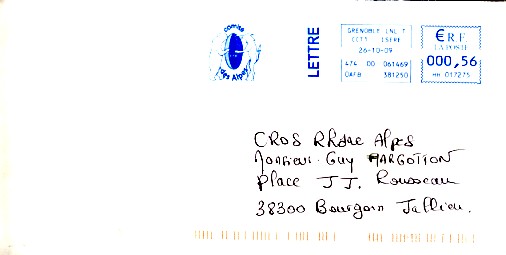 comité
des Alpes
LETTRE
GRENOBLE LNL T
CC11 ISERE
26-10-09
474 00 061469
0AFB 381250
€ R.F.
LA POSTE
000,56
HH 017275
CROS Rhône Alpes
Monsieur Guy MARGOTTON
Place J J. Rousseau
38300 Bourgoin Jallieu.